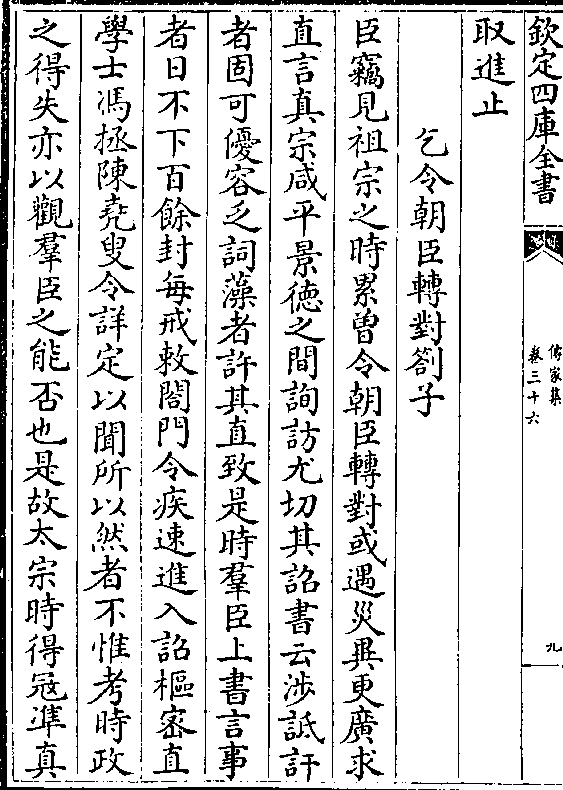 欽定四庫全書
傳家集
卷三十六
九
取進止
乞令朝臣轉對劄子
臣竊見祖宗之時累曽令朝臣轉對或遇災異更廣求
直言真宗咸平景徳之間詢訪尤切其詔書云涉詆訐
者固可優容乏詞藻者許其直致是時羣臣上書言事
者日不下百餘封每戒敕閤門令疾速進入詔樞密直
學士馮拯陳堯叟令詳定以聞所以然者不惟考時政
之得失亦以觀羣臣之能否也是故太宗時得冦準真